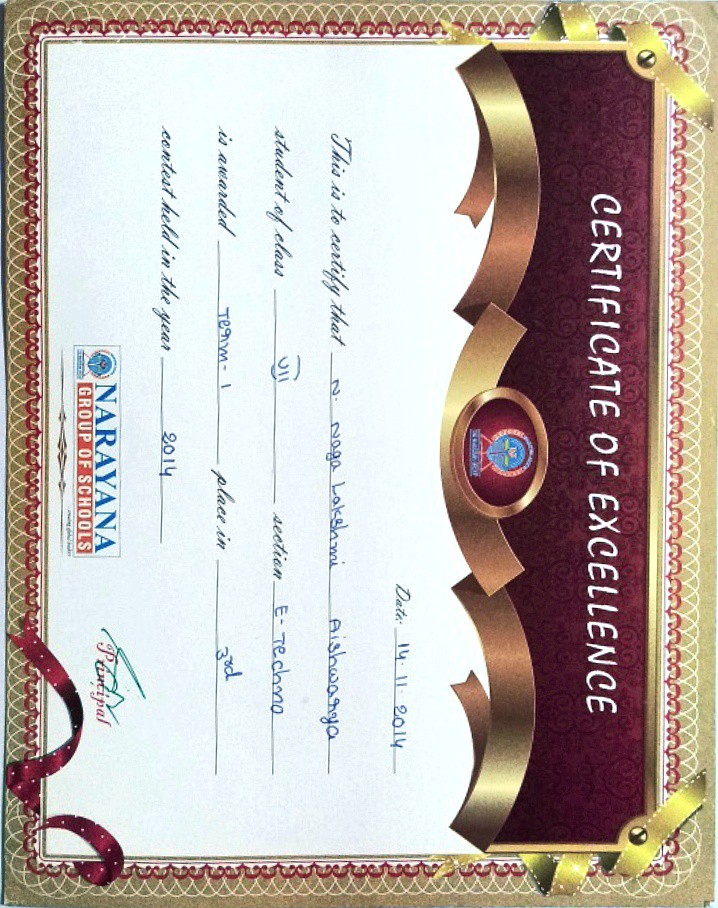 CERTIFICATE OF EXCELLENCE
THE NARAYANA GROUP
Date: 14.11.2014
This is to certify that N. Naga Lakshmi Aishwarya
student of class VII section E-Techno
is awarded Term-1 place in 3rd
contest held in the year 2014
NARAYANA
GROUP OF SCHOOLS
...creating global leaders
Principal